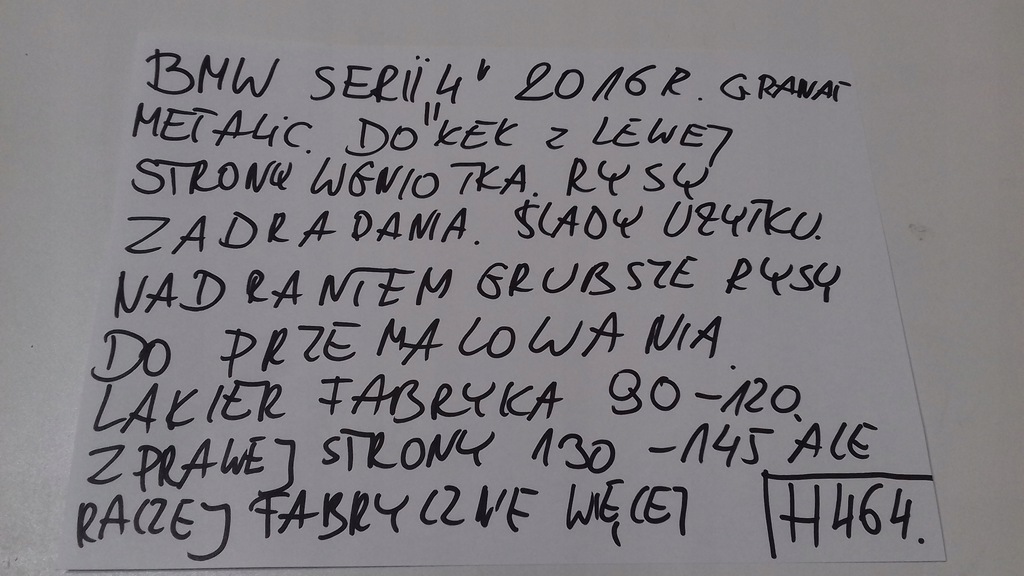 BMW SERII "4" 2016R. GRANAT
METALIC. DO KEK Z LEWEJ
STRONY WGNIOTKA. RYSY
ZADRADANIA. ŚLADY UŻYTKU.
NAD RANTEM GRUBSZE RYSY
DO PRZEMALOWANIA.
LAKIER FABRYKA 90-120.
Z PRAWEJ STRONY 130-145 ALE
RACZEJ FABRYCZNE WIĘCEJ
H464.